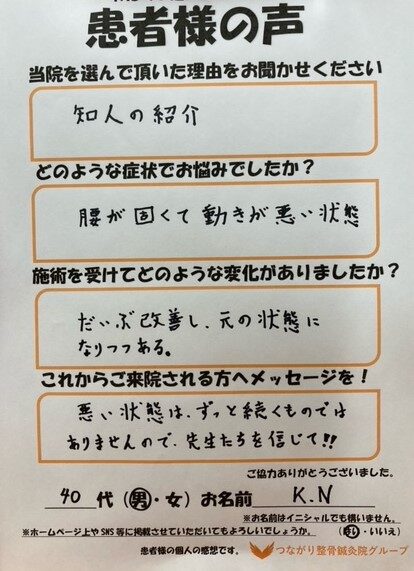 患者様の声
当院を選んで頂いた理由をお聞かせください
知人の紹介
どのような症状でお悩みでしたか？
腰が固くて動きが悪い状態
施術を受けてどのような変化がありましたか？
だいぶ改善し、元の状態に
なりつつある。
これからご来院される方へメッセージを！
悪い状態は、ずっと続くものでは
ありませんので、先生たちを信じて!!
ご協力ありがとうございました。
40 代（男・女）お名前 K.N
※お名前はイニシャルでも構いません。
※ホームページ上やSNS等に掲載させていただいてもよろしいでしょうか。（はい・いいえ）
患者様の個人の感想です。 つながり整骨鍼灸院グループ